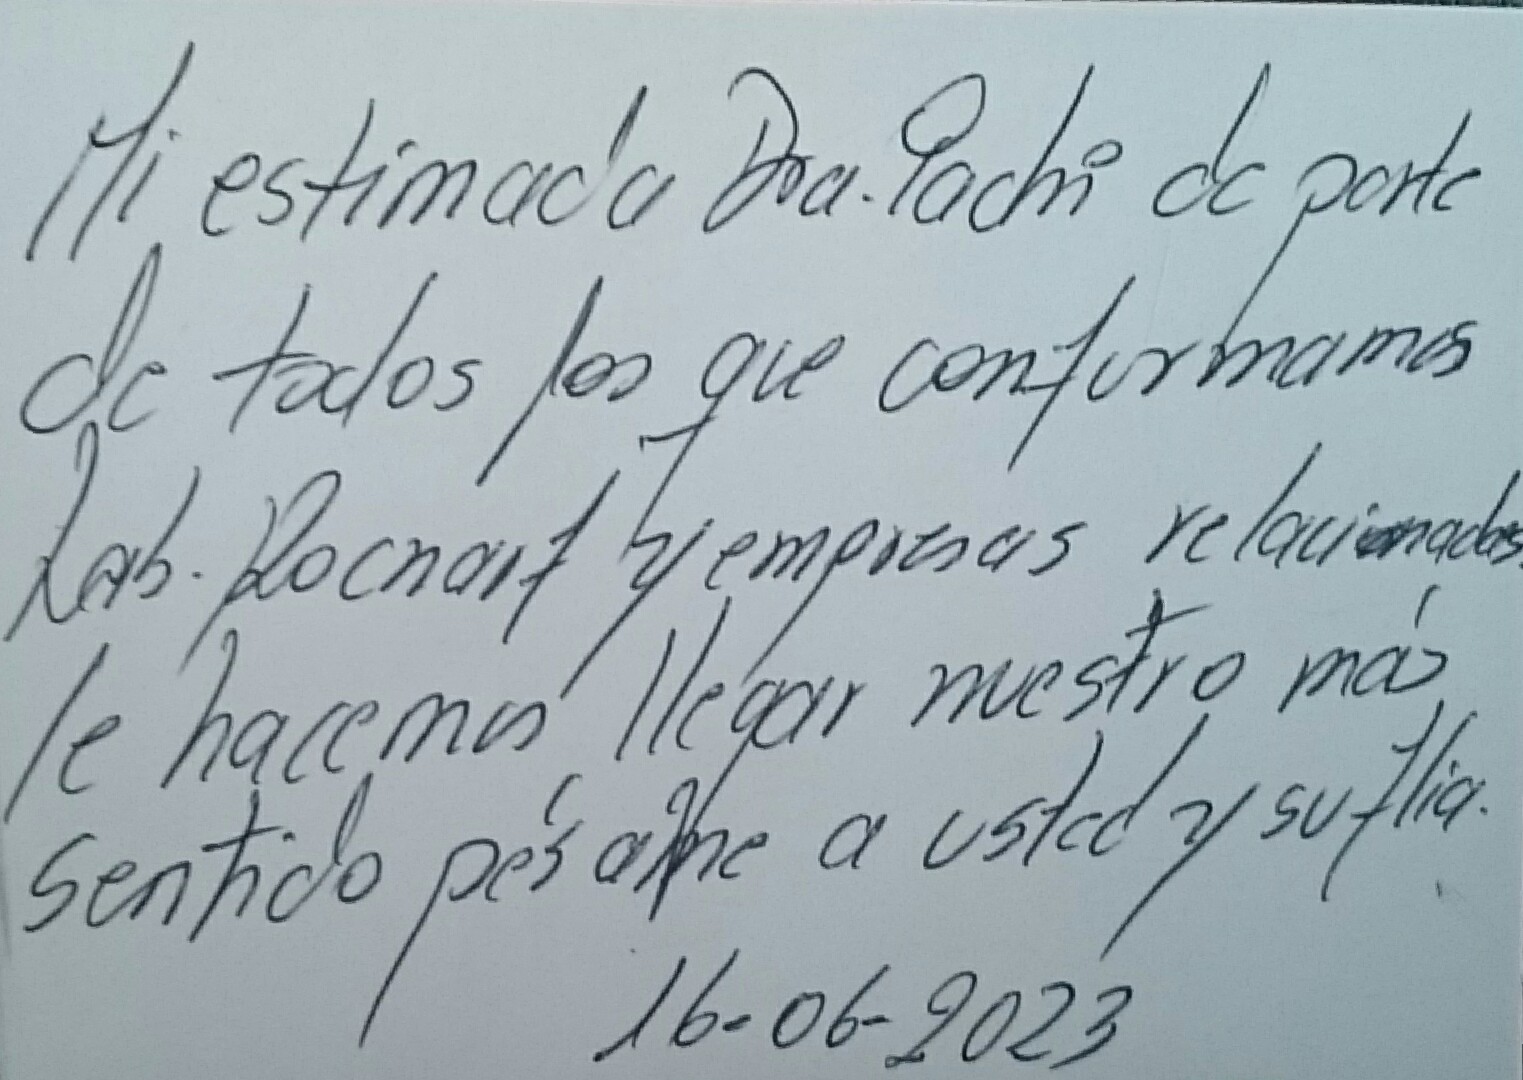 Mi estimada Dra. Pachi de parte
de todos los que conformamos
Lab. Rocnarf y empresas relacionadas
le hacemos llegar nuestro más
sentido pésame a usted y su flia.
16-06-2023